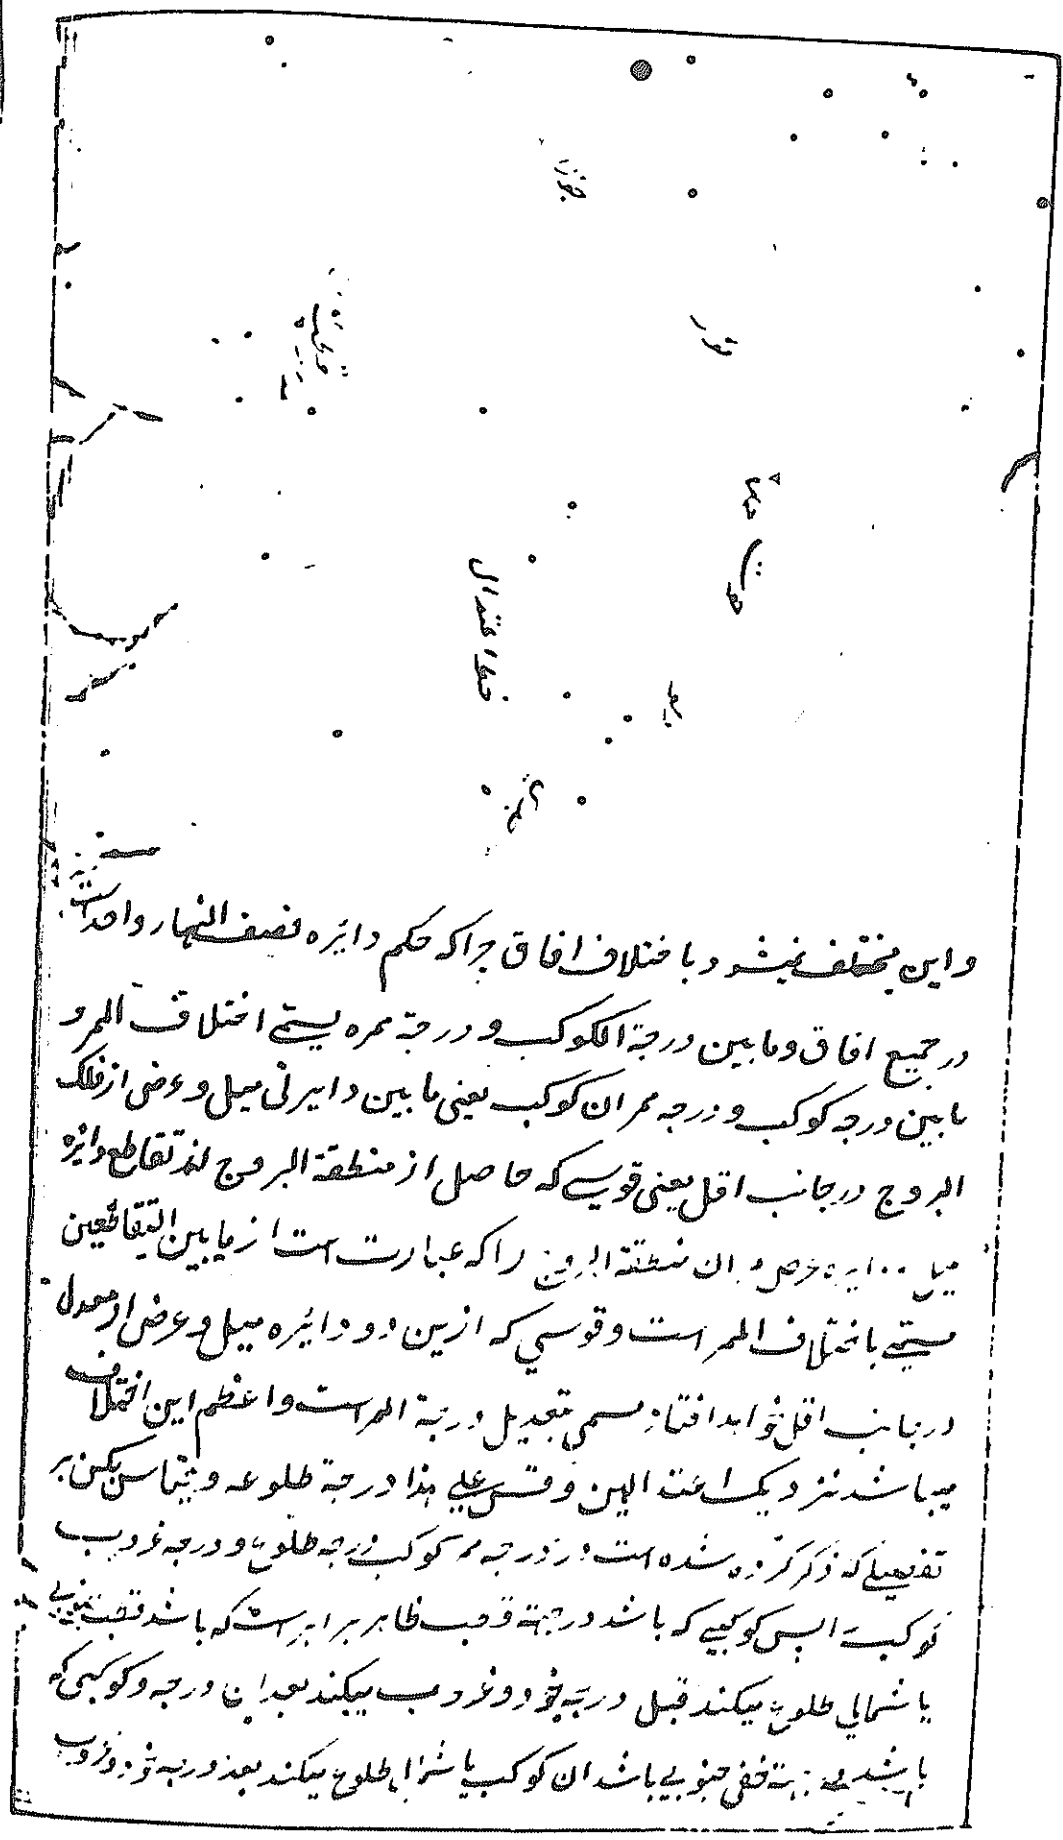 جوزا
ثور
خط اعتدال
و این مختلف نمیشود باختلاف افاق چراکه حکم دائره نصف النهار واحداست
در جمیع افاق و مابین درجة الکوکب و درجة ممره یسمی اختلاف الممر و
مابین درجه کوکب و درجه ممر ان کوکب یعنی مابین دایرتی میل و عرض از فلک
البروج در جانب اقل یعنی قوسے که حاصل از منطقة البروج تقاطع دائره
میل و دایره عرض ان منطقة البروج را که عبارت است از مابین التقاطعین
مسمی باختلاف الممر است و قوسی که ازین دو دائره میل و عرض از معدل
در جانب اقل خواهد افتاد مسمی بتعدیل درجة الممر است و اعظم این اختلاف
میباشد نزدیک اعتدالین و قس علی هذا درجة طلوعه و قیاس بکن بر
تفصیلے که ذکر کرده شده است در درجه ممر کوکب درجه طلوع و درجه غروب
کوکب اپس کوکبے که باشد در جهة قطب ظاهر برابرست که باشد قطب جنوبی
یا شمالی طلوع میکند قبل درجه خود و غروب میکند بعد ان درجه و کوکبی که
باشد خفی جنوبی باشد ان کوکب یا شمالی طلوع میکند بعد درجه خود و غروب